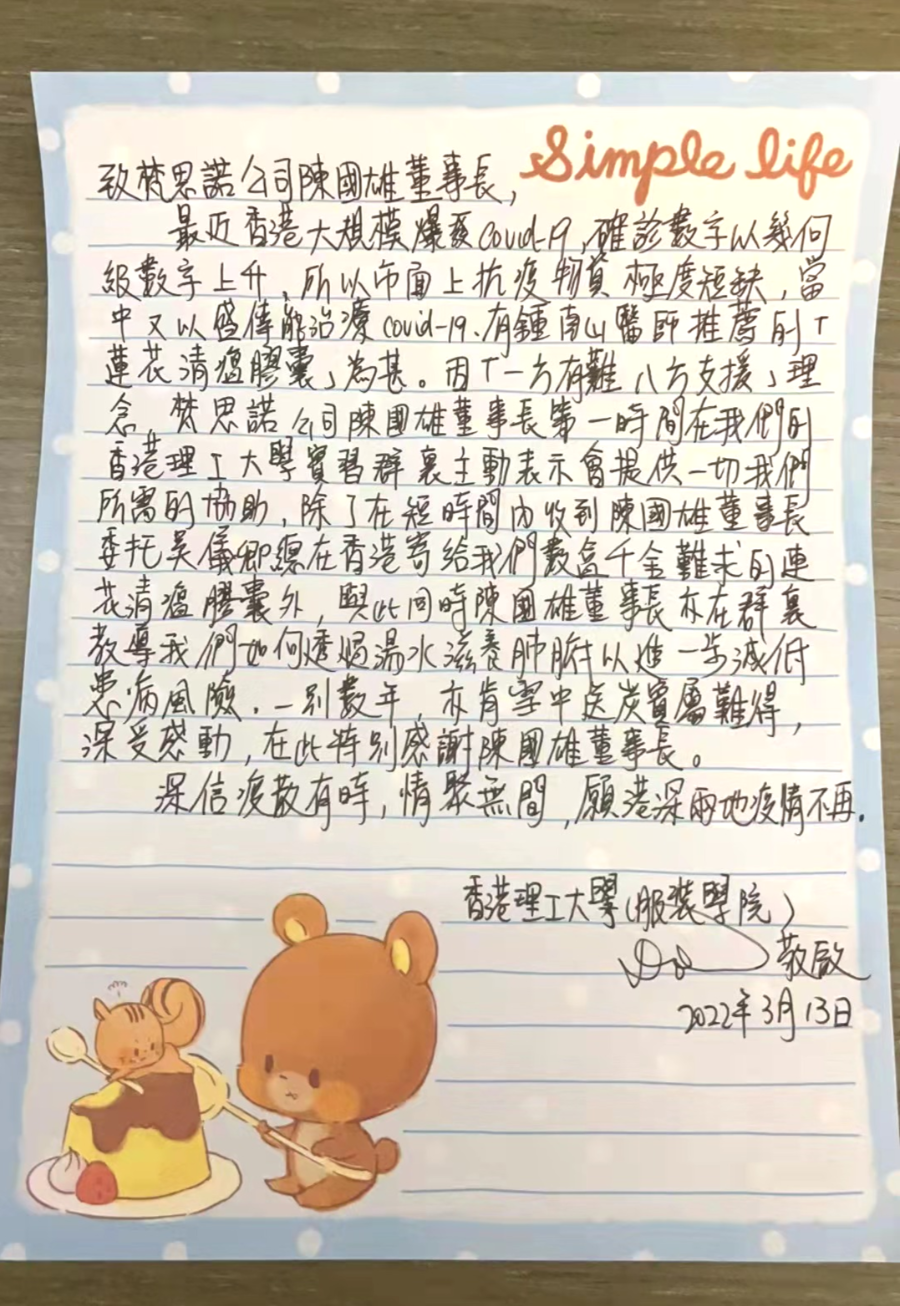 Simple life
致梵思諾公司陳國雄董事長,
最近香港大規模爆發covid-19,確診數字以幾何
級數字上升,所以市面上抗疫物資極度短缺,當
中又以盛傳能治療covid-19、有鍾南山醫師推薦的「
蓮花清瘟膠囊」為甚。因「一方有難八方支援」理
念,梵思諾公司陳國雄董事長第一時間在我們的
香港理工大學實習群裏主動表示會提供一切我們
所需的協助,除了在短時間內收到陳國雄董事長
委托吳儀卿總在香港寄給我們數盒千金難求的連
花清瘟膠囊外,與此同時陳國雄董事長亦在群裏
教導我們如何透過湯水滋養肺腑以進一步減低
患病風險.一別數年,亦肯雪中送炭實屬難得,
深受感動,在此特別感謝陳國雄董事長。
深信疫散有時,情聚無間,願港深兩地疫情不再.
香港理工大學(服裝學院)
敬啟
2022年3月13日